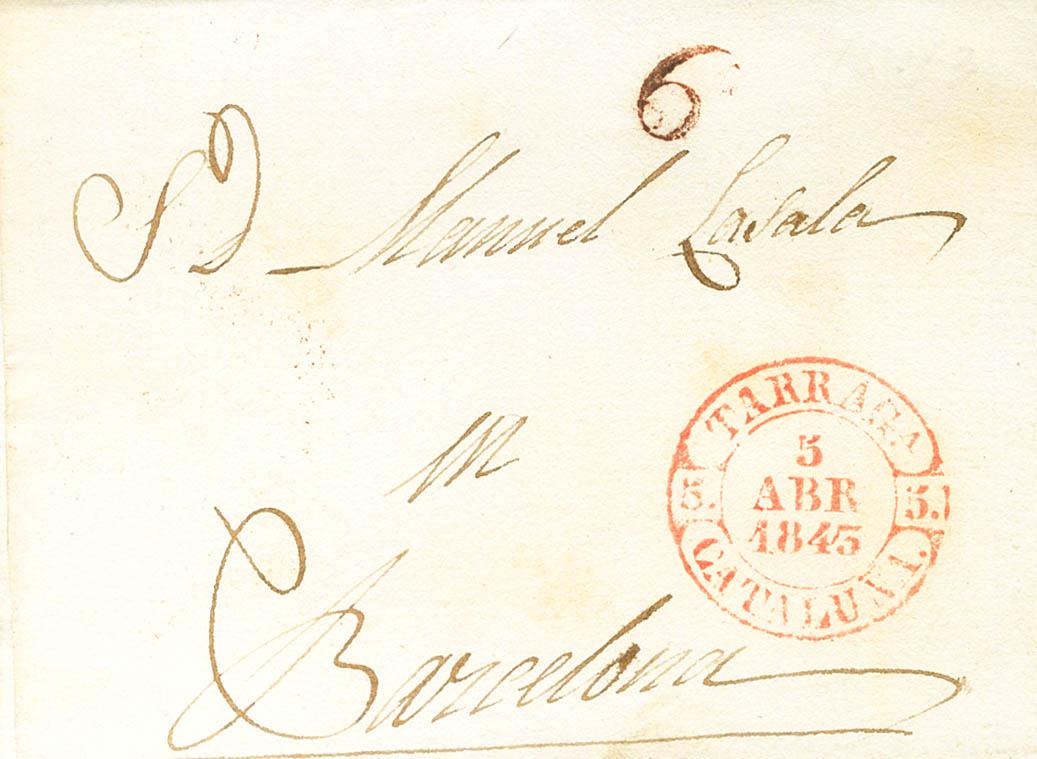 6
S D Manuel Lasala
TARRAGA
5
5. ABR 5.
1843
CATALUÑA.
en
Barcelona